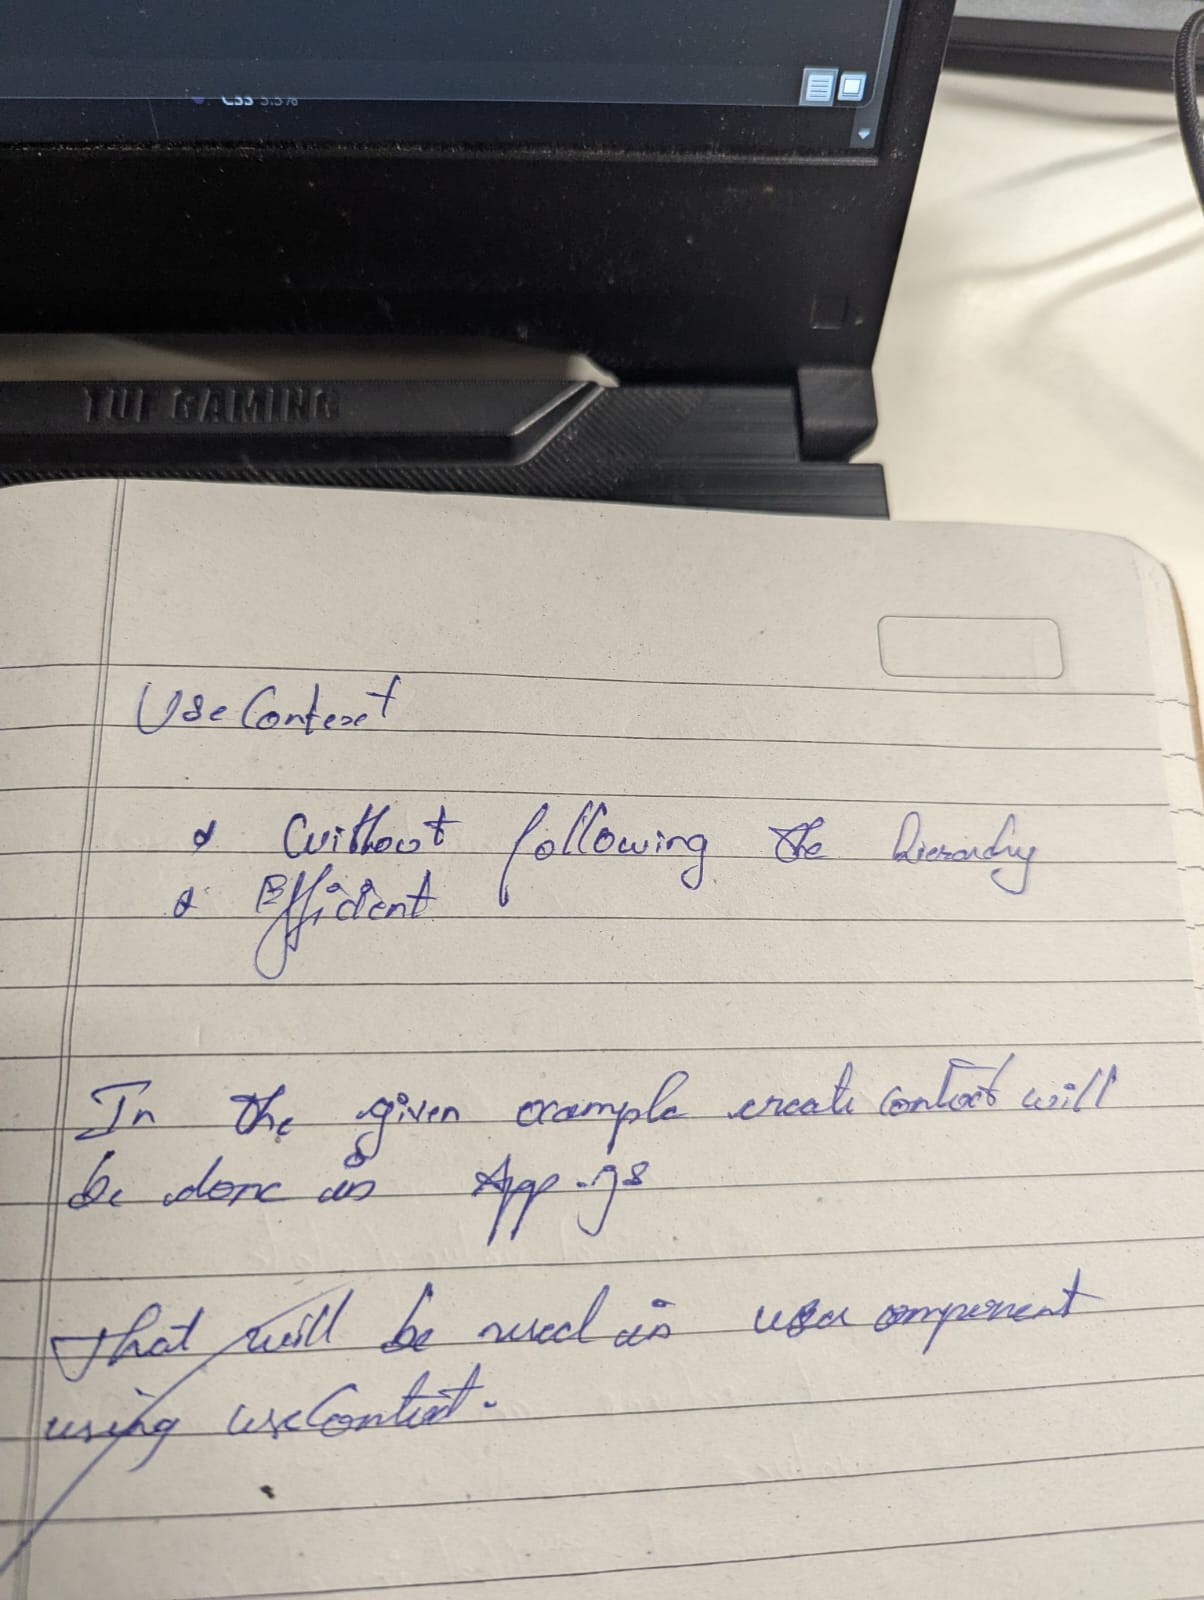 CSS 5.5%
TUF GAMING
UseContext
Without following the hierarchy
Efficient
In the given example create context will
be done in App.js
That will be used in user component
using useContext.